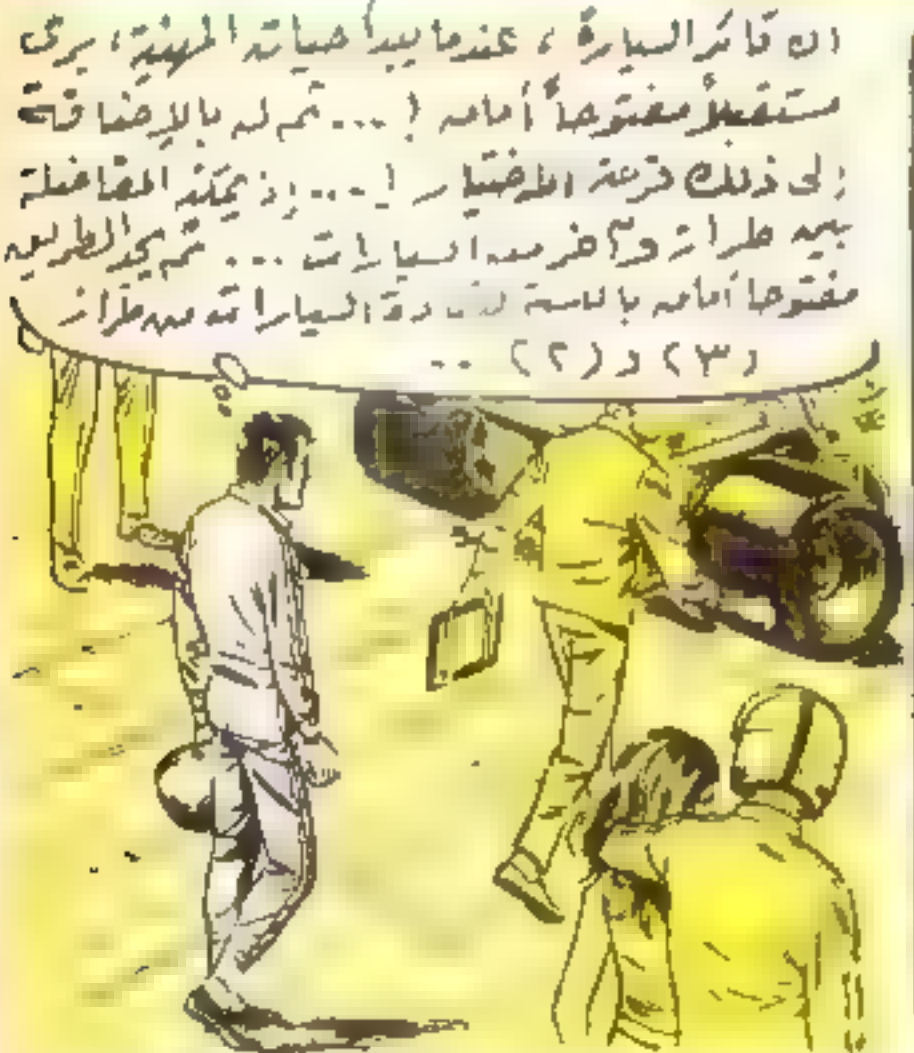 ان قائد السيارة ، عندما يبدأ حياته المهنية ، يرى
مستقبلاً مفتوحاً أمامه ! ... ثم له بالإضافة
إلى ذلك فرصة الاختيار ! ... إذ يمكنه المفاضلة
بين طراز وآخر من السيارات ... ثم يجد الطريق
مفتوحا أمامه بالنسبة لقيادة السيارات من طراز
(٣) و (٢) ..